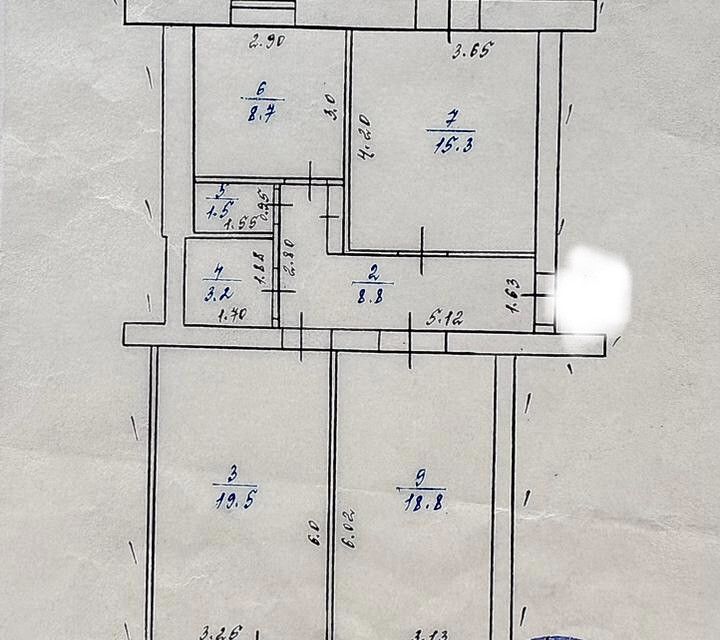 2.90
3.65
6
8.7
3.0
4.20
7
15.3
5
1.5
0.95
1.55
4
3.2
1.88
2.80
1.70
2
8.8
5.12
1.63
3
19.5
6.0
9
18.8
6.02
3.26
3.13